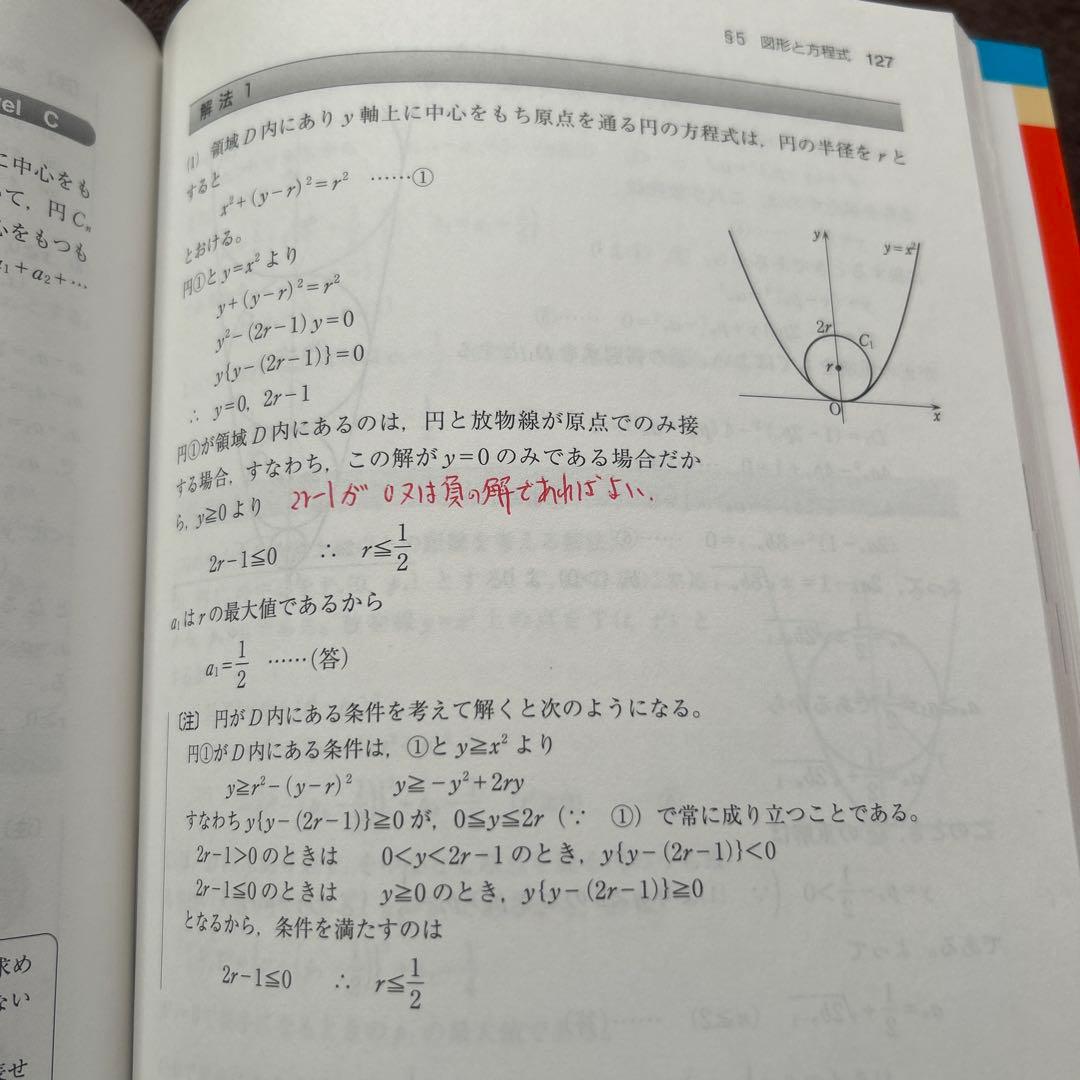 §5 図形と方程式 127
解法1
(1) 領域D内にありy軸上に中心をもち原点を通る円の方程式は，円の半径をrと
すると
x²+(y−r)²=r² ……①
とおける。
円①とy=x²より
y+(y−r)²=r²
y²−(2r−1)y=0
y{y−(2r−1)}=0
∴ y=0, 2r−1
円①が領域D内にあるのは，円と放物線が原点でのみ接
する場合，すなわち，この解がy=0のみである場合だか
ら，y≧0より
2r-1が 0又は負の解であればよい.
2r−1≦0 ∴ r≦1/2
a₁はrの最大値であるから
a₁=1/2 ……(答)
〔注〕 円がD内にある条件を考えて解くと次のようになる。
円①がD内にある条件は，①とy≧x²より
y≧r²−(y−r)² y≧−y²+2ry
すなわちy{y−(2r−1)}≧0が，0≦y≦2r (∵ ①) で常に成り立つことである。
2r−1>0のときは 0<y<2r−1のとき，y{y−(2r−1)}<0
2r−1≦0のときは y≧0のとき，y{y−(2r−1)}≧0
となるから，条件を満たすのは
2r−1≦0 ∴ r≦1/2
y
y=x²
2r
C₁
r
O
x
vel C
に中心をも
て，円Cₙ
心をもつも
a₁+a₂+…
求め
ない